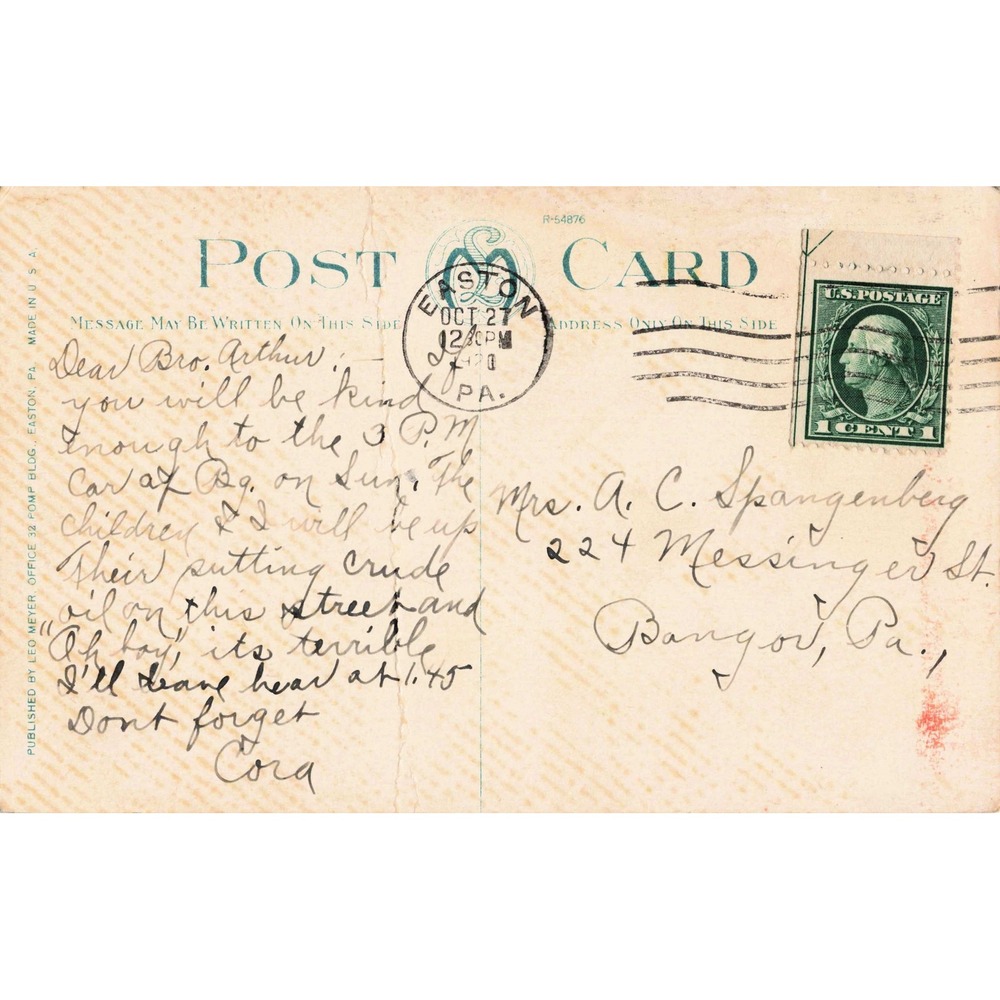 R-54876
POST CARD
MESSAGE MAY BE WRITTEN ON THIS SIDE
ADDRESS ONLY ON THIS SIDE
EASTON
OCT 27
12 30PM
1920
PA.
U.S. POSTAGE
1 CENT 1
Dear Bro. Arthur: —
you will be kind
enough to the 3 P.M
Car at Bg. on Sun. The
children & I will be up
Their putting crude
oil on this street and
"Oh boy," its terrible
I'll leave hear at 1.45
Dont forget
Cora
Mrs. A. C. Spangenberg
224 Messinger St.
Bangor, Pa.,
PUBLISHED BY LEO MEYER, OFFICE 32 POMP BLDG., EASTON, PA. MADE IN U S A.